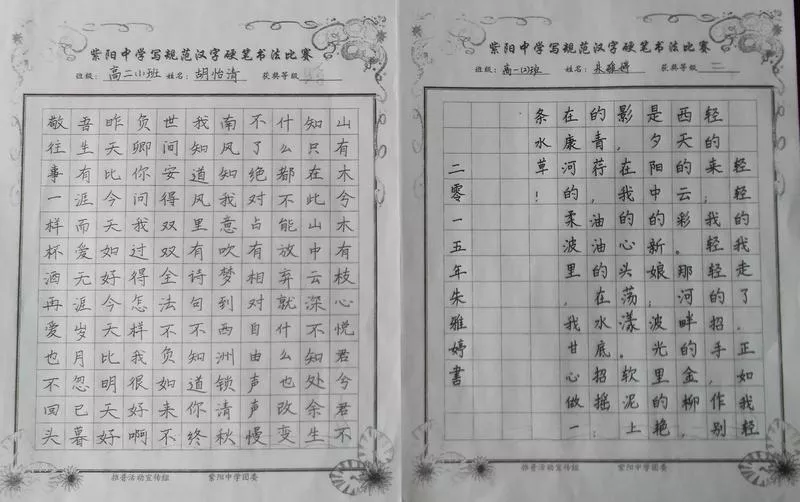 紫阳中学写规范汉字硬笔书法比赛
班级：高二(1)班 姓名：胡怡清 获奖等级
山有木兮木有枝心悦君兮君不
知只在此山中云深不知处余生
什么都不能放弃就什么也改变
不了绝对占有相对自由声声慢
南风知我意吹梦到西洲锁清秋
我知道风里有诗句不知道你终
世间安得双双全法不负如来不
负卿你问我过得怎样我很好啊
昨天比今天如好今天比明天好
吾生有涯而爱无涯岁月忽已暮
敬往事一样杯酒再爱也不回头
推普活动宣传组 紫阳中学团委
紫阳中学写规范汉字硬笔书法比赛
班级：高一(2)班 姓名：朱雅婷 获奖等级 二
轻轻的我走了，正如我轻
轻的来；我轻轻的招手，作别
西天的云彩。那河畔的金柳，
是夕阳中的新娘；波光里的艳
影，在我的心头荡漾。软泥上
的青荇，油油的在水底招摇；
在康河的柔波里，我甘心做一
条水草！
二零一五年朱雅婷書
推普活动宣传组 紫阳中学团委